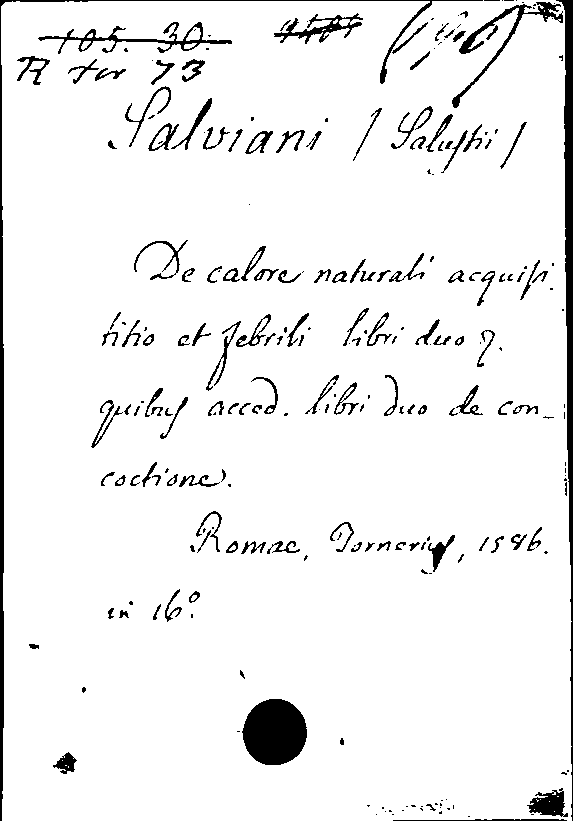 105. 30.
R for 73
Salviani / Salustii /
De calore naturali acquisi
titio et febrili libri duo
quibus acced. libri duo de con_
coctione.
Romae, Tornerius, 1586.
in 16°.